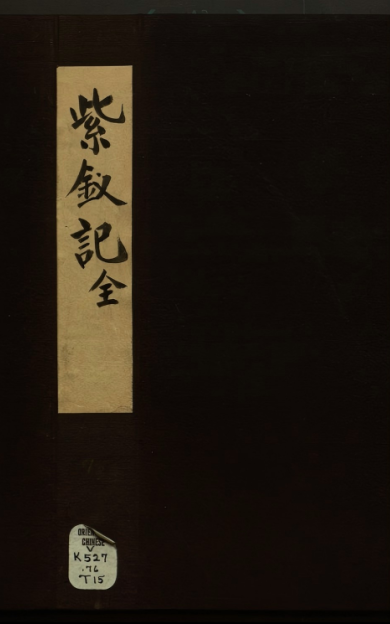 紫釵記
全
CHINESE
K527
.76
T15